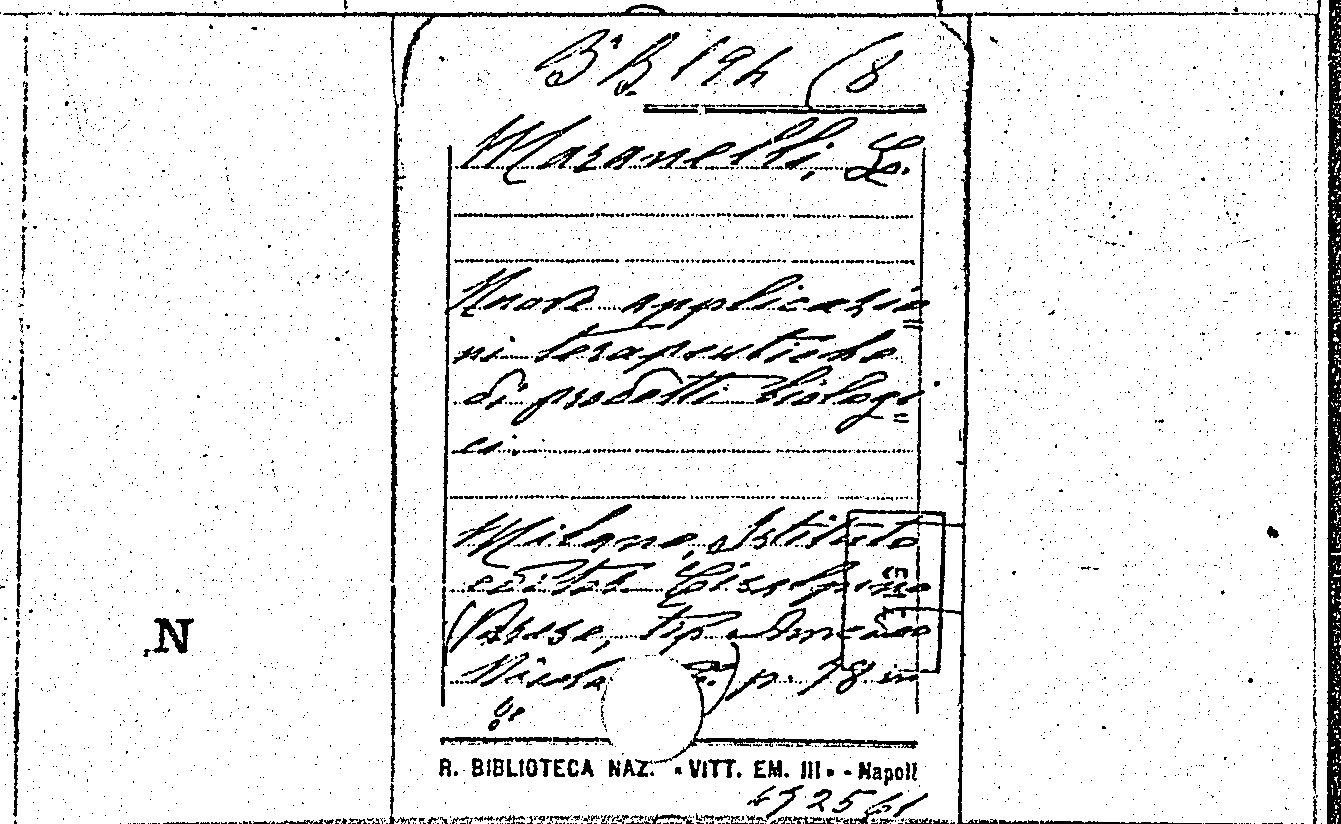 B. B. 194 (8
Maranelli, L.
Nuove applicazio=
ni terapeutiche
di prodotti biologi=
ci.
Milano, Istituto
edit. Cisalpino
(Varese, tip. Amedeo
Nicola p. 78 in
8º
N
R. BIBLIOTECA NAZ. "VITT. EM. III" - Napoli
472561